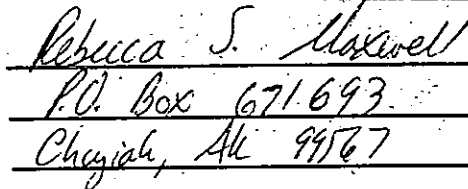 Rebecca S. Maxwell
P.O. Box 671693
Chugiak, AK 99567